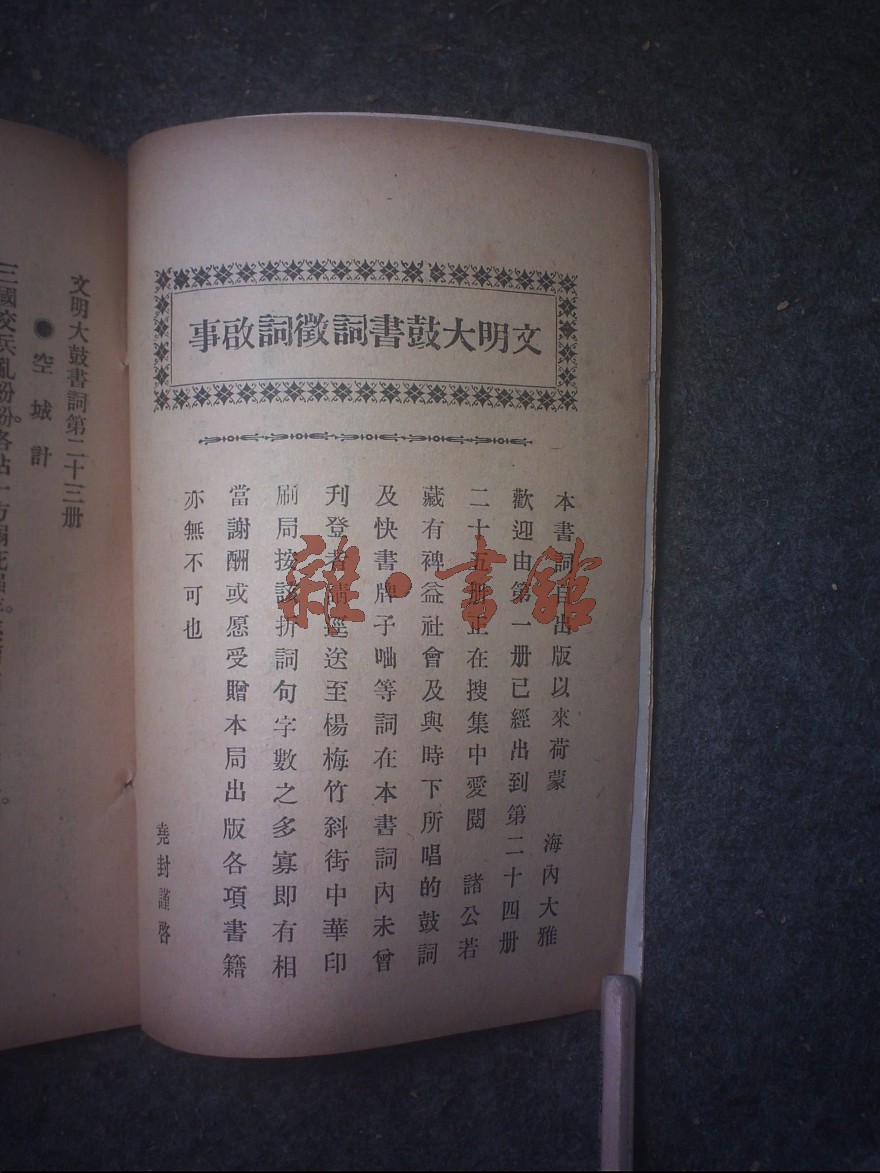 文明大鼓書詞徵詞啟事
本書詞自出版以來荷蒙 海內大雅
歡迎由第一册已經出到第二十四册
二十五册正在搜集中愛閱 諸公若
藏有裨益社會及與時下所唱的鼓詞
及快書牌子曲等詞在本書詞內未曾
刊登者請逕送至楊梅竹斜街中華印
刷局按該折詞句字數之多寡即有相
當謝酬或愿受贈本局出版各項書籍
亦無不可也
堯封謹啓
雜·書館
文明大鼓書詞第二十三册
●空城計
三國交兵亂紛紛各佔一方